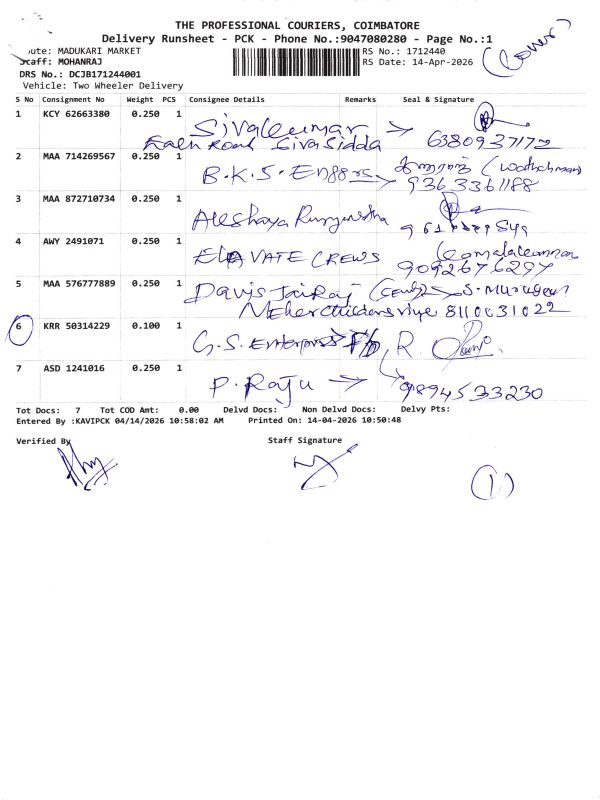 THE PROFESSIONAL COURIERS, COIMBATORE
Delivery Runsheet - PCK - Phone No.:9047080280 - Page No.:1
Route: MADUKARI MARKET RS No.: 1712440
Staff: MOHANRAJ RS Date: 14-Apr-2026
DRS No.: DCJB171244001
Vehicle: Two Wheeler Delivery
S No Consignment No Weight PCS Consignee Details Remarks Seal & Signature
1 KCY 62663380 0.250 1 Sivakumar
6380937172
2 MAA 714269567 0.250 1 B.K.S. Enggrs (Watchman)
9363361188
3 MAA 872710734 0.250 1
4 AWY 2491071 0.250 1 ELAVATE CREWS
9092676297
5 MAA 576777889 0.250 1 Davis Jairaj S. Murugan
8110631022
6 KRR 50314229 0.100 1 G.S. Enterprises R.
7 ASD 1241016 0.250 1 P. Raju 9894533230
Tot Docs: 7 Tot COD Amt: 0.00 Delvd Docs: Non Delvd Docs: Delvy Pts:
Entered By :KAVIPCK 04/14/2026 10:58:02 AM Printed On: 14-04-2026 10:50:48
Verified By Staff Signature
(1)